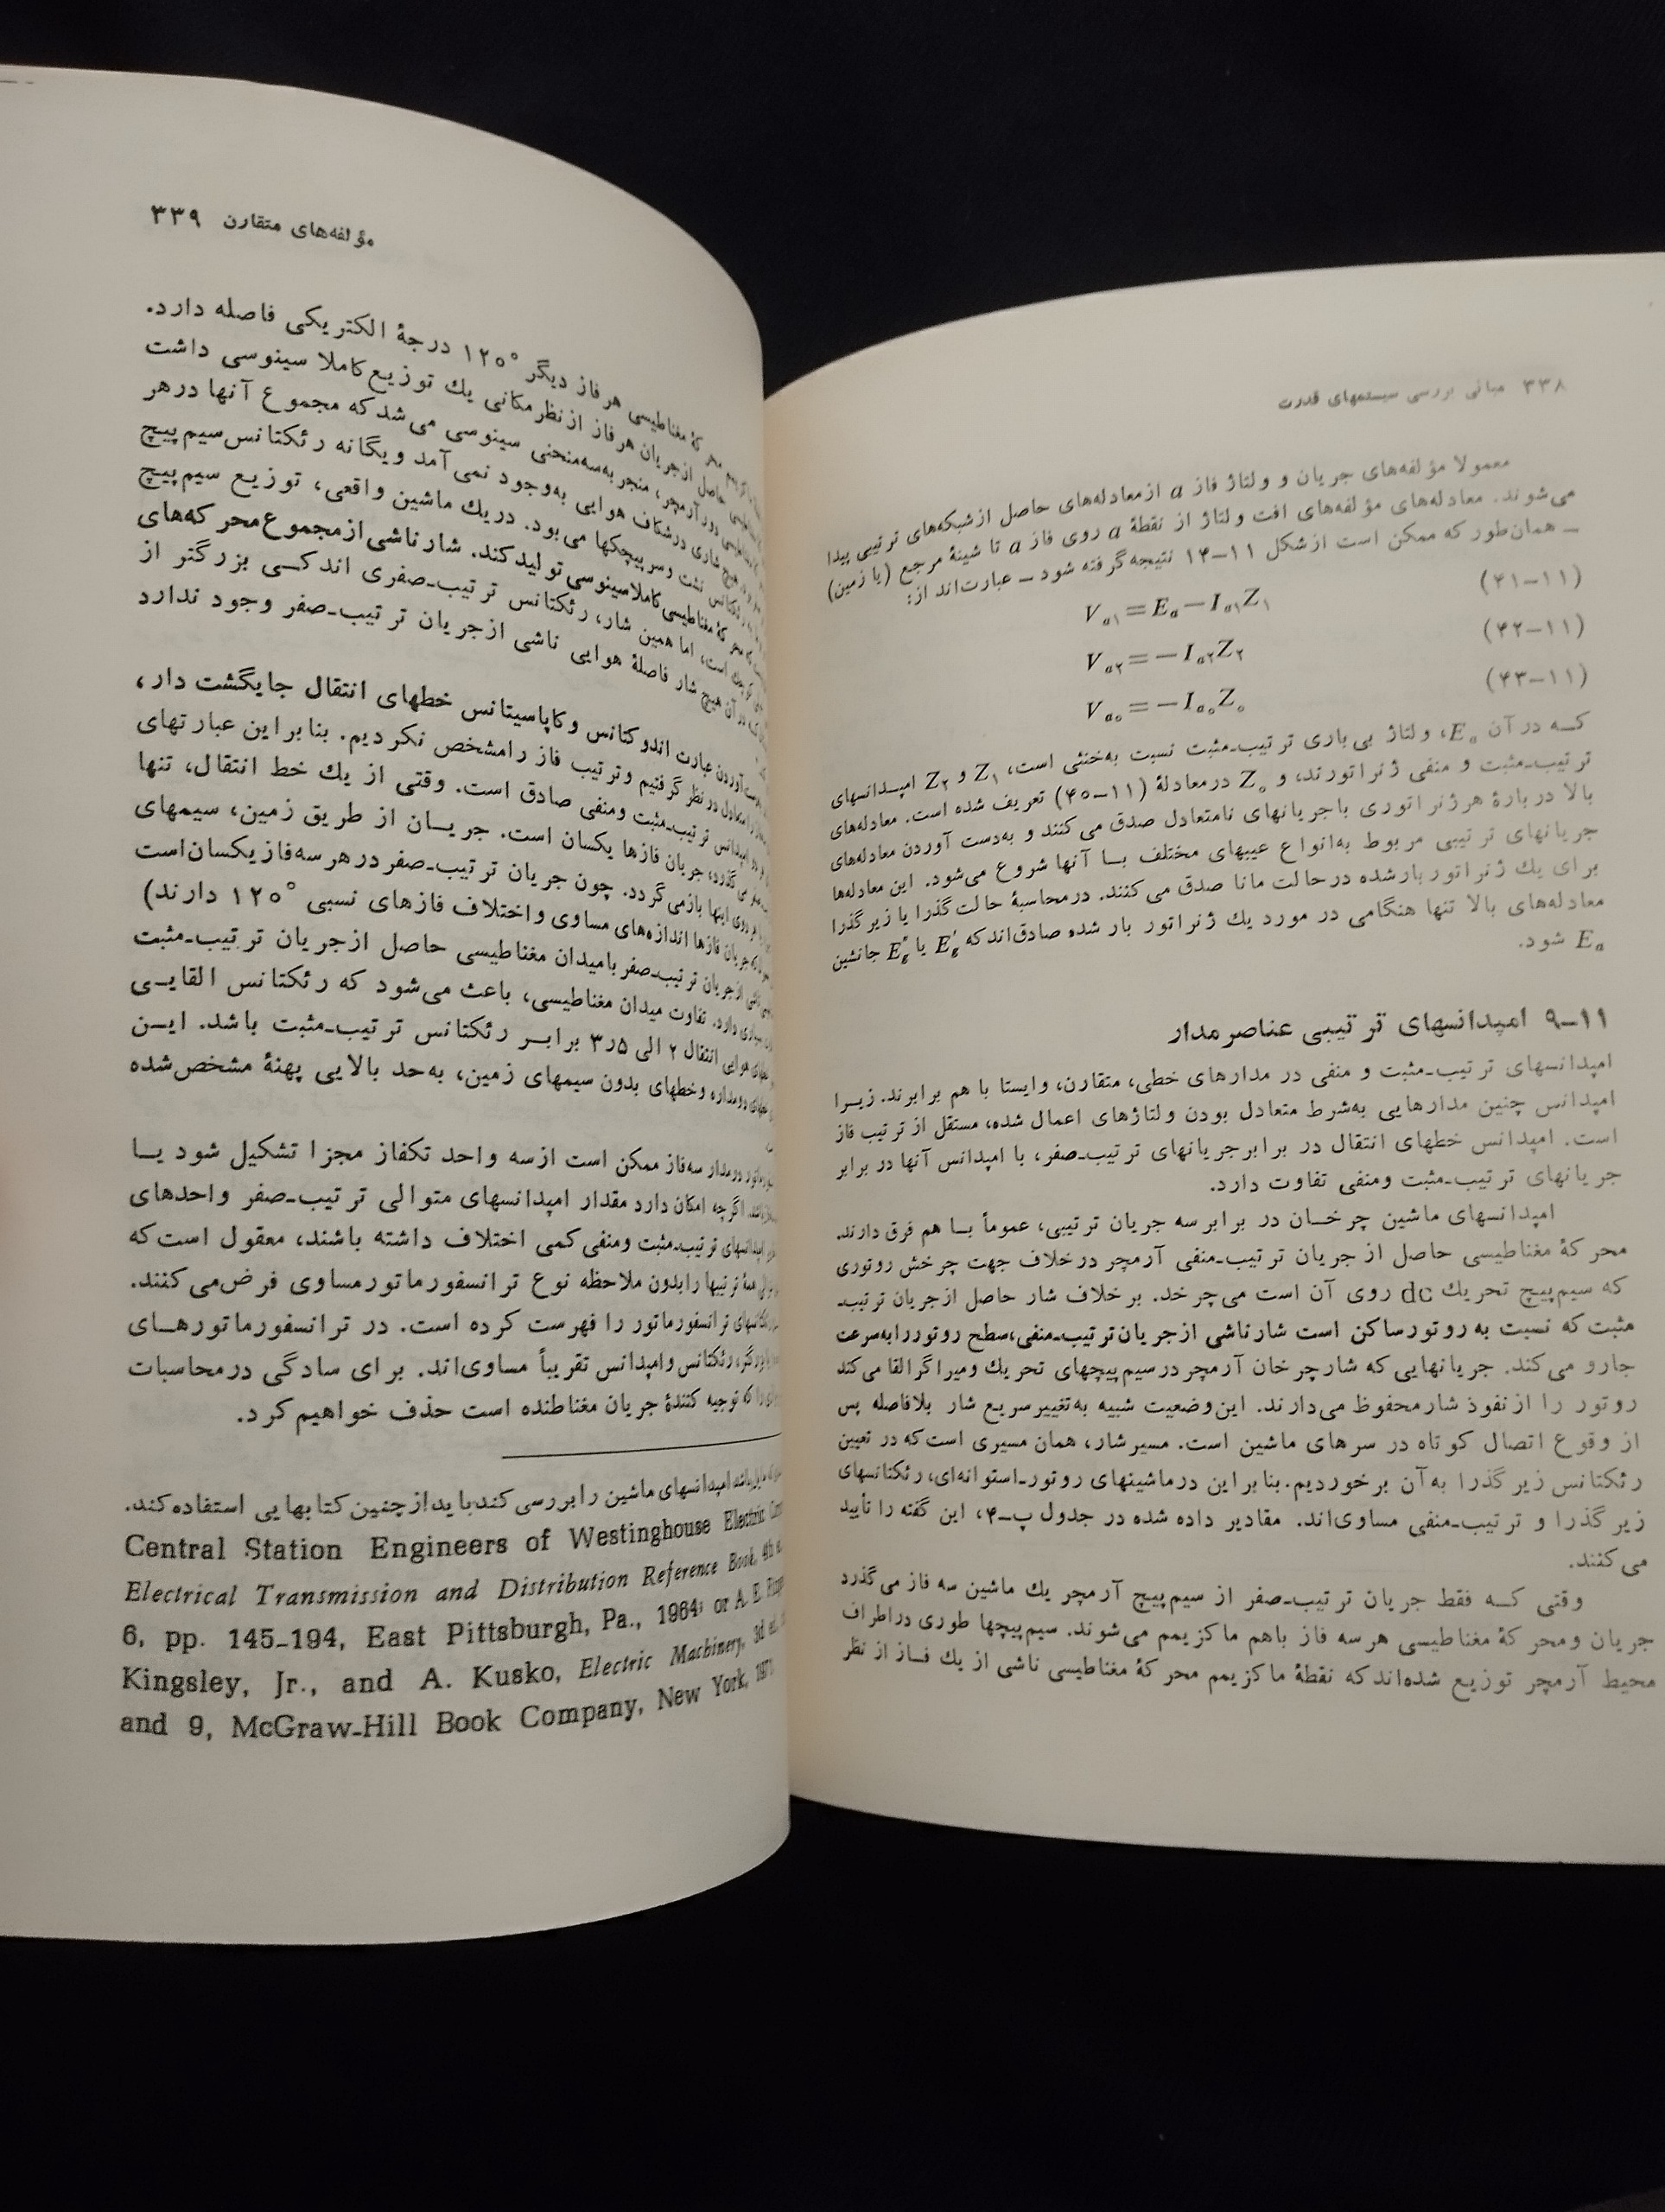 ۳۳۸ مبانی بررسی سیستمهای قدرت
معمولا مؤلفه‌های جریان و ولتاژ فاز a ازمعادله‌های حاصل ازشبکه‌های ترتیبی پیدا
می‌شوند. معادله‌های مؤلفه‌های افت ولتاژ از نقطهٔ a روی فاز a تا شینهٔ مرجع (یا زمین)
ــ همان‌طور که ممکن است ازشکل ۱۱-۱۴ نتیجه گرفته شود ــ عبارت‌اند از:
V a۱ = E a − I a۱ Z ۱ (۱۱-۴۱)
V a۲ = − I a۲ Z ۲ (۱۱-۴۲)
V a۰ = − I a۰ Z ۰ (۱۱-۴۳)
کــه در آن E a، ولتاژ بی‌باری ترتیب-مثبت نسبت به‌خنثی است، Z۱ و Z۲ امپــدانسهای
ترتیب-مثبت و منفی ژنراتورند، و Z۰ درمعادلهٔ (۱۱-۴۰) تعریف شده است. معادله‌های
بالا دربارهٔ هرژنراتوری باجریانهای نامتعادل صدق می‌کنند و به‌دست آوردن معادله‌های
جریانهای ترتیبی مربوط به‌انواع عیبهای مختلف بــا آنها شروع می‌شود. این معادله‌ها
برای یك ژنراتور بارشده درحالت مانا صدق می‌کنند. درمحاسبهٔ حالت گذرا یا زیرگذرا
معادله‌های بالا تنها هنگامی در مورد یك ژنراتور بار شده صادق‌اند که E′g یا E″g جانشین
Ea شود.
۱۱-۹ امپدانسهای ترتیبی عناصر مدار
امپدانسهای ترتیب-مثبت و منفی در مدارهای خطی، متقارن، وایستا با هم برابرند. زیــرا
امپدانس چنین مدارهایی به‌شرط متعادل بودن ولتاژهای اعمال شده، مستقل از ترتیب فاز
است. امپدانس خطهای انتقال در برابرجریانهای ترتیب-صفر، با امپدانس آنها در برابر
جریانهای ترتیب-مثبت ومنفی تفاوت دارد.
امپدانسهای ماشین چرخــان در برابر سه جریان ترتیبی، عموماً بــا هم فرق دارند.
محرکهٔ مغناطیسی حاصل از جریان ترتیب-منفی آرمچر درخلاف جهت چرخش روتوری
که سیم‌پیچ تحریك dc روی آن است می‌چرخد. برخلاف شار حاصل ازجریان ترتیب-
مثبت که نسبت به روتورساکن است شارناشی ازجریان‌ترتیب-منفی،سطح روتوررابه‌سرعت
جارو می‌کند. جریانهایی که شارچرخان آرمچر درسیم‌پیچهای تحریك ومیراگر القا می‌کند
روتور را ازنفوذ شارمحفوظ می‌دارند. این‌وضعیت شبیه به‌تغییرسریع شار بلافاصله پس
از وقوع اتصال کوتاه در سرهای ماشین است. مسیرشار، همان مسیری است‌که در تعیین
رئکتانس زیرگذرا به‌آن برخوردیم.بنابراین درماشینهای روتور-استوانه‌ای، رئکتانسهای
زیرگذرا و ترتیب-منفی مساوی‌اند. مقادیر داده شده در جدول پ-۴، این گفته را تأیید
می‌کنند.
وقتی کــه فقط جریان ترتیب-صفر از سیم‌پیچ آرمچر یك ماشین سه فاز می‌گذرد
جریان ومحرکهٔ مغناطیسی هرسه فاز باهم ماکزیمم می‌شوند. سیم‌پیچها طوری دراطراف
محیط آرمچر توزیع شده‌اند که نقطهٔ ماکزیمم محرکهٔ مغناطیسی ناشی از یك فــاز از نظر
مؤلفه‌های متقارن ۳۳۹
محرکهٔ مغناطیسی هرفاز دیگر ۱۲۰° درجهٔ الکتریکی فاصله دارد.
حاصل ازجریان هرفاز ازنظرمکانی یك توزیع کاملا سینوسی داشت
دور آرمچر، منجر به‌سه‌منحنی سینوسی می‌شد که مجموع آنها درهر
هیچ شاری درشکاف هوایی به‌وجود نمی‌آمد ویگانه رئکتانس سیم‌پیچ
رئکتانس نشت وسرپیچکها می‌بود. دریك ماشین واقعی، توزیع سیم‌پیچ
محرکهٔ مغناطیسی کاملاسینوسی تولیدکند. شارناشی ازمجموع محرکه‌های
است، اما همین شار، رئکتانس ترتیب-صفری اندکــی بزرگتر از
در آن هیچ شار فاصلهٔ هوایی ناشی ازجریان ترتیب-صفر وجود ندارد
آوردن عبارت اندوکتانس وکاپاسیتانس خطهای انتقال جایگشت دار،
متعادل در نظر گرفتیم وترتیب فاز رامشخص نکردیم. بنابراین عبارتهای
امپدانس ترتیب-مثبت ومنفی صادق است. وقتی از یك خط انتقال، تنها
می‌گذرد، جریان فازها یکسان است. جریــان از طریق زمین، سیمهای
روی اینها بازمی‌گردد. چون جریان ترتیب-صفر درهر سه‌فاز یکسان‌است
جریان فازها اندازه‌های مساوی واختلاف فازهای نسبی ۱۲۰° دارند)
ازجریان ترتیب-صفر بامیدان مغناطیسی حاصل ازجریان ترتیب-مثبت
دارد. تفاوت میدان مغناطیسی، باعث می‌شود که رئکتانس القایــی
هوایی انتقال ۲ الی ۳٫۵ برابــر رئکتانس ترتیب-مثبت باشد. ایــن
دومداره وخطهای بدون سیمهای زمین، به‌حد بالایی پهنهٔ مشخص‌شده
درمدار سه‌فاز ممکن است ازسه واحد تکفاز مجزا تشکیل شود یــا
اگرچه امکان دارد مقدار امپدانسهای متوالی ترتیب-صفر واحدهای
امپدانسهای ترتیب-مثبت ومنفی‌کمی اختلاف داشته باشند، معقول است‌که
همهٔ ترتیبها رابدون ملاحظه نوع ترانسفورماتورمساوی فرض‌می‌کنند.
ترانسفورماتور را فهرست کرده است. در ترانسفورماتورهــای
رئکتانس وامپدانس تقریباً مساوی‌اند. برای سادگی درمحاسبات
را که توجیه کنندهٔ جریان مغناطنده است حذف خواهیم کرد.
امپدانسهای ماشین رابررسی کندبایدازچنین کتابهایی استفاده‌کند.
Central Station Engineers of Westinghouse Electric
Electrical Transmission and Distribution Reference Book, 4th
6, pp. 145-194, East Pittsburgh, Pa., 1964; or A. E.
Kingsley, Jr., and A. Kusko, Electric Machinery, 3d ed.
and 9, McGraw-Hill Book Company, New York, 1971